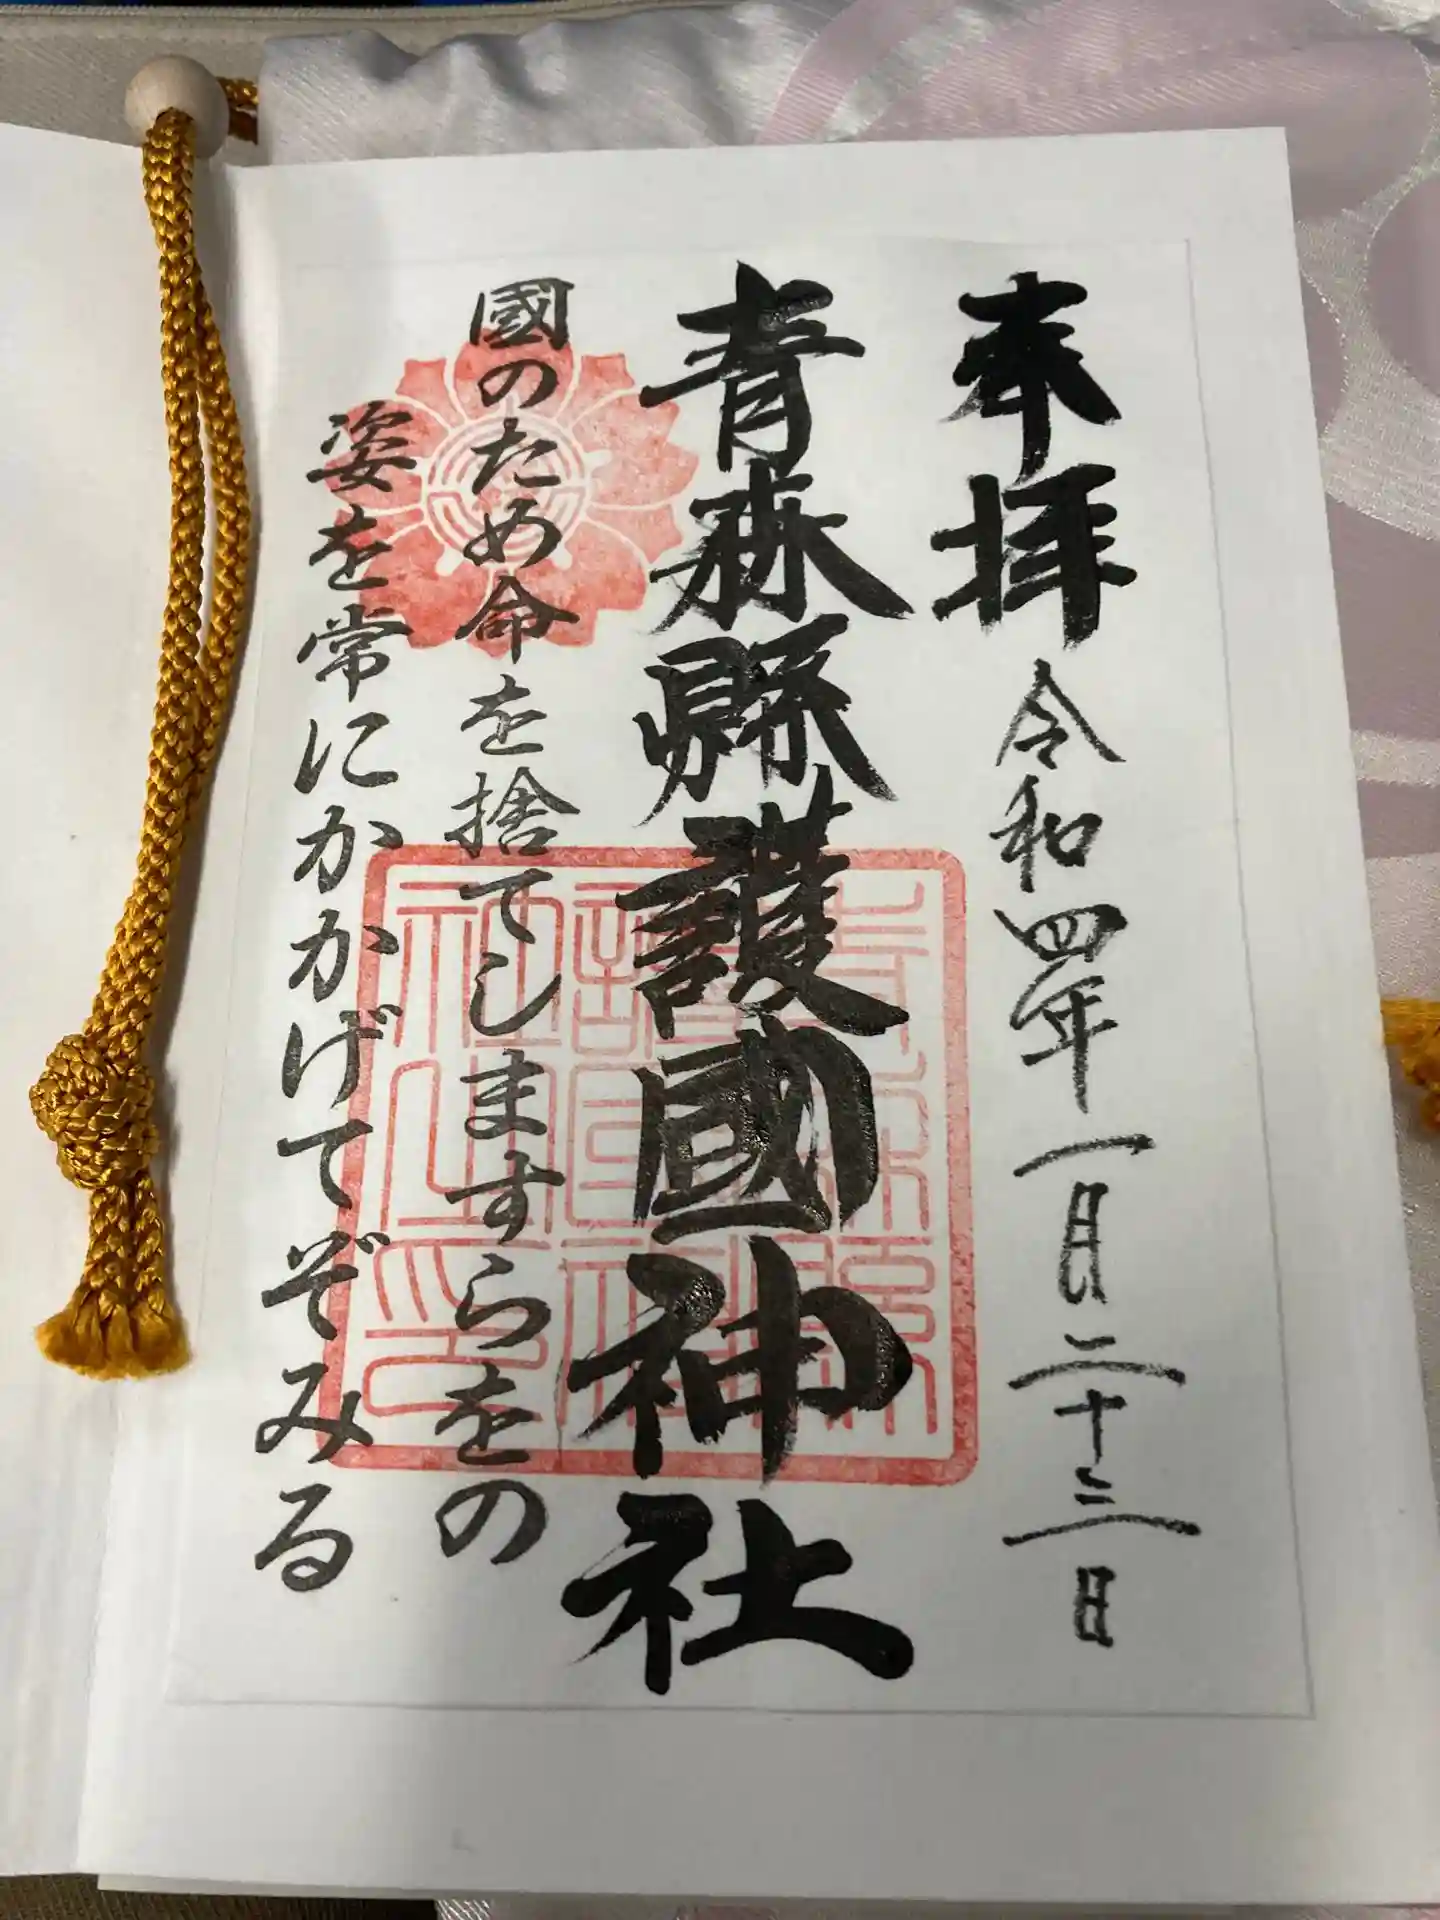 奉拝 令和四年一月二十三日
青森縣護國神社
國のため命を捨てしますらをの
姿を常にかかげてぞみる
青森縣護國神社之印